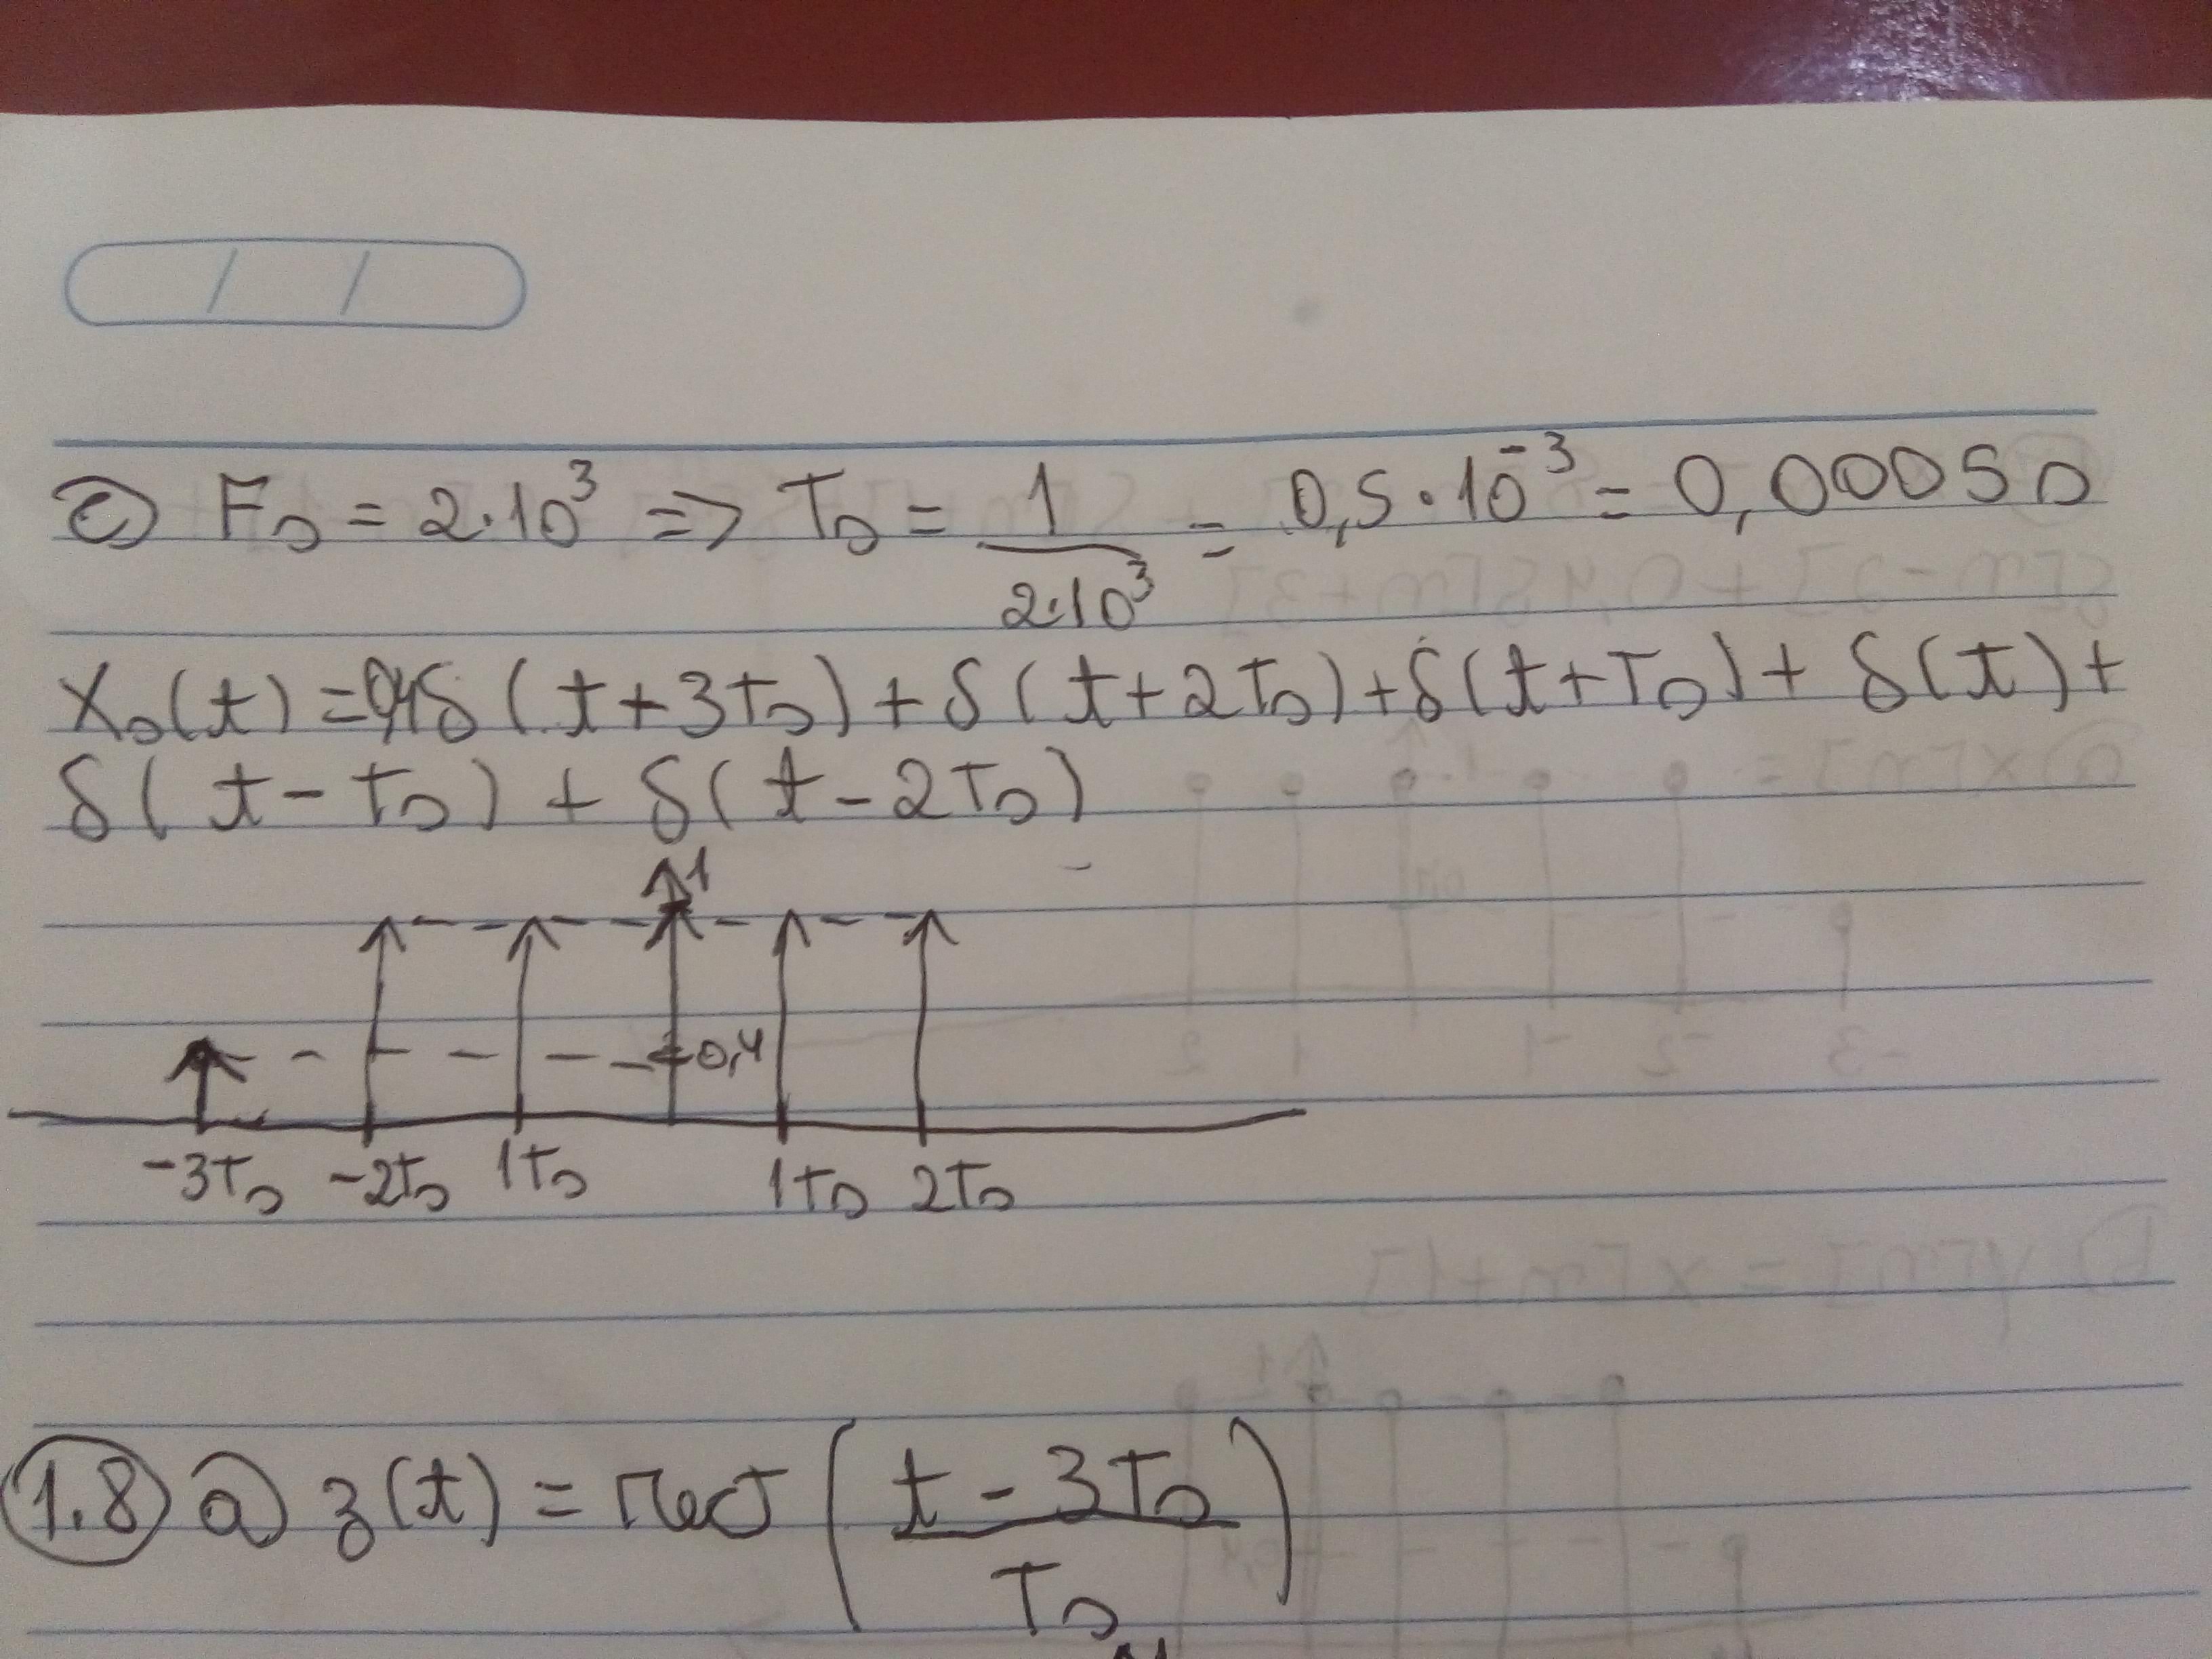 c) Fs = 2·10³ => Ts = 1/(2·10³) = 0,5·10⁻³ = 0,0005 s
Xs(t) = 0,4δ(t+3Ts) + δ(t+2Ts) + δ(t+Ts) + δ(t) +
δ(t-Ts) + δ(t-2Ts)
1
0,4
-3Ts -2Ts 1Ts 1Ts 2Ts
1.8 a) z(t) = rect((t-3Ts)/Ts)